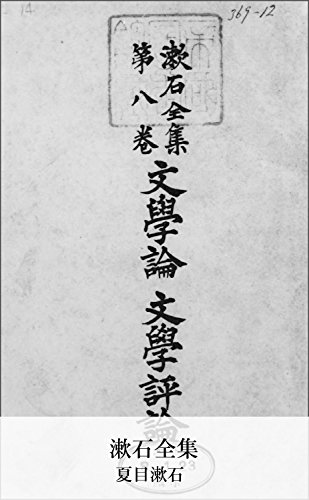 369-12
14
漱石全集
第八卷
文學論 文學評論
漱石全集
夏目漱石